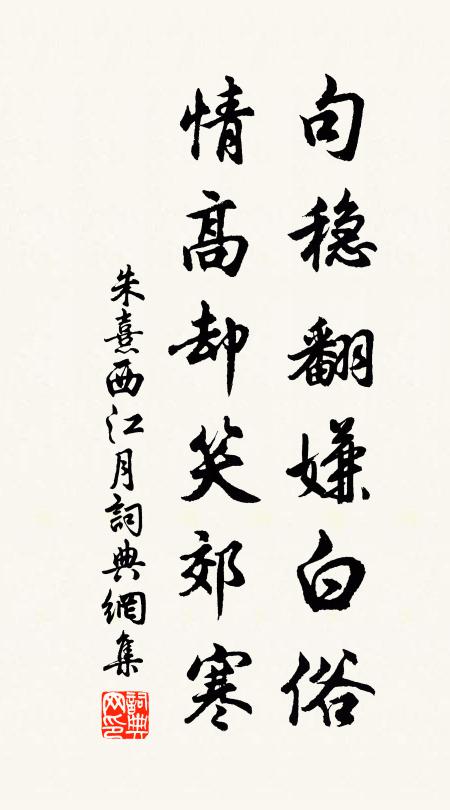 句稳翻嫌白俗
情高却笑郊寒
朱熹西江月詞典網集
詞典网印